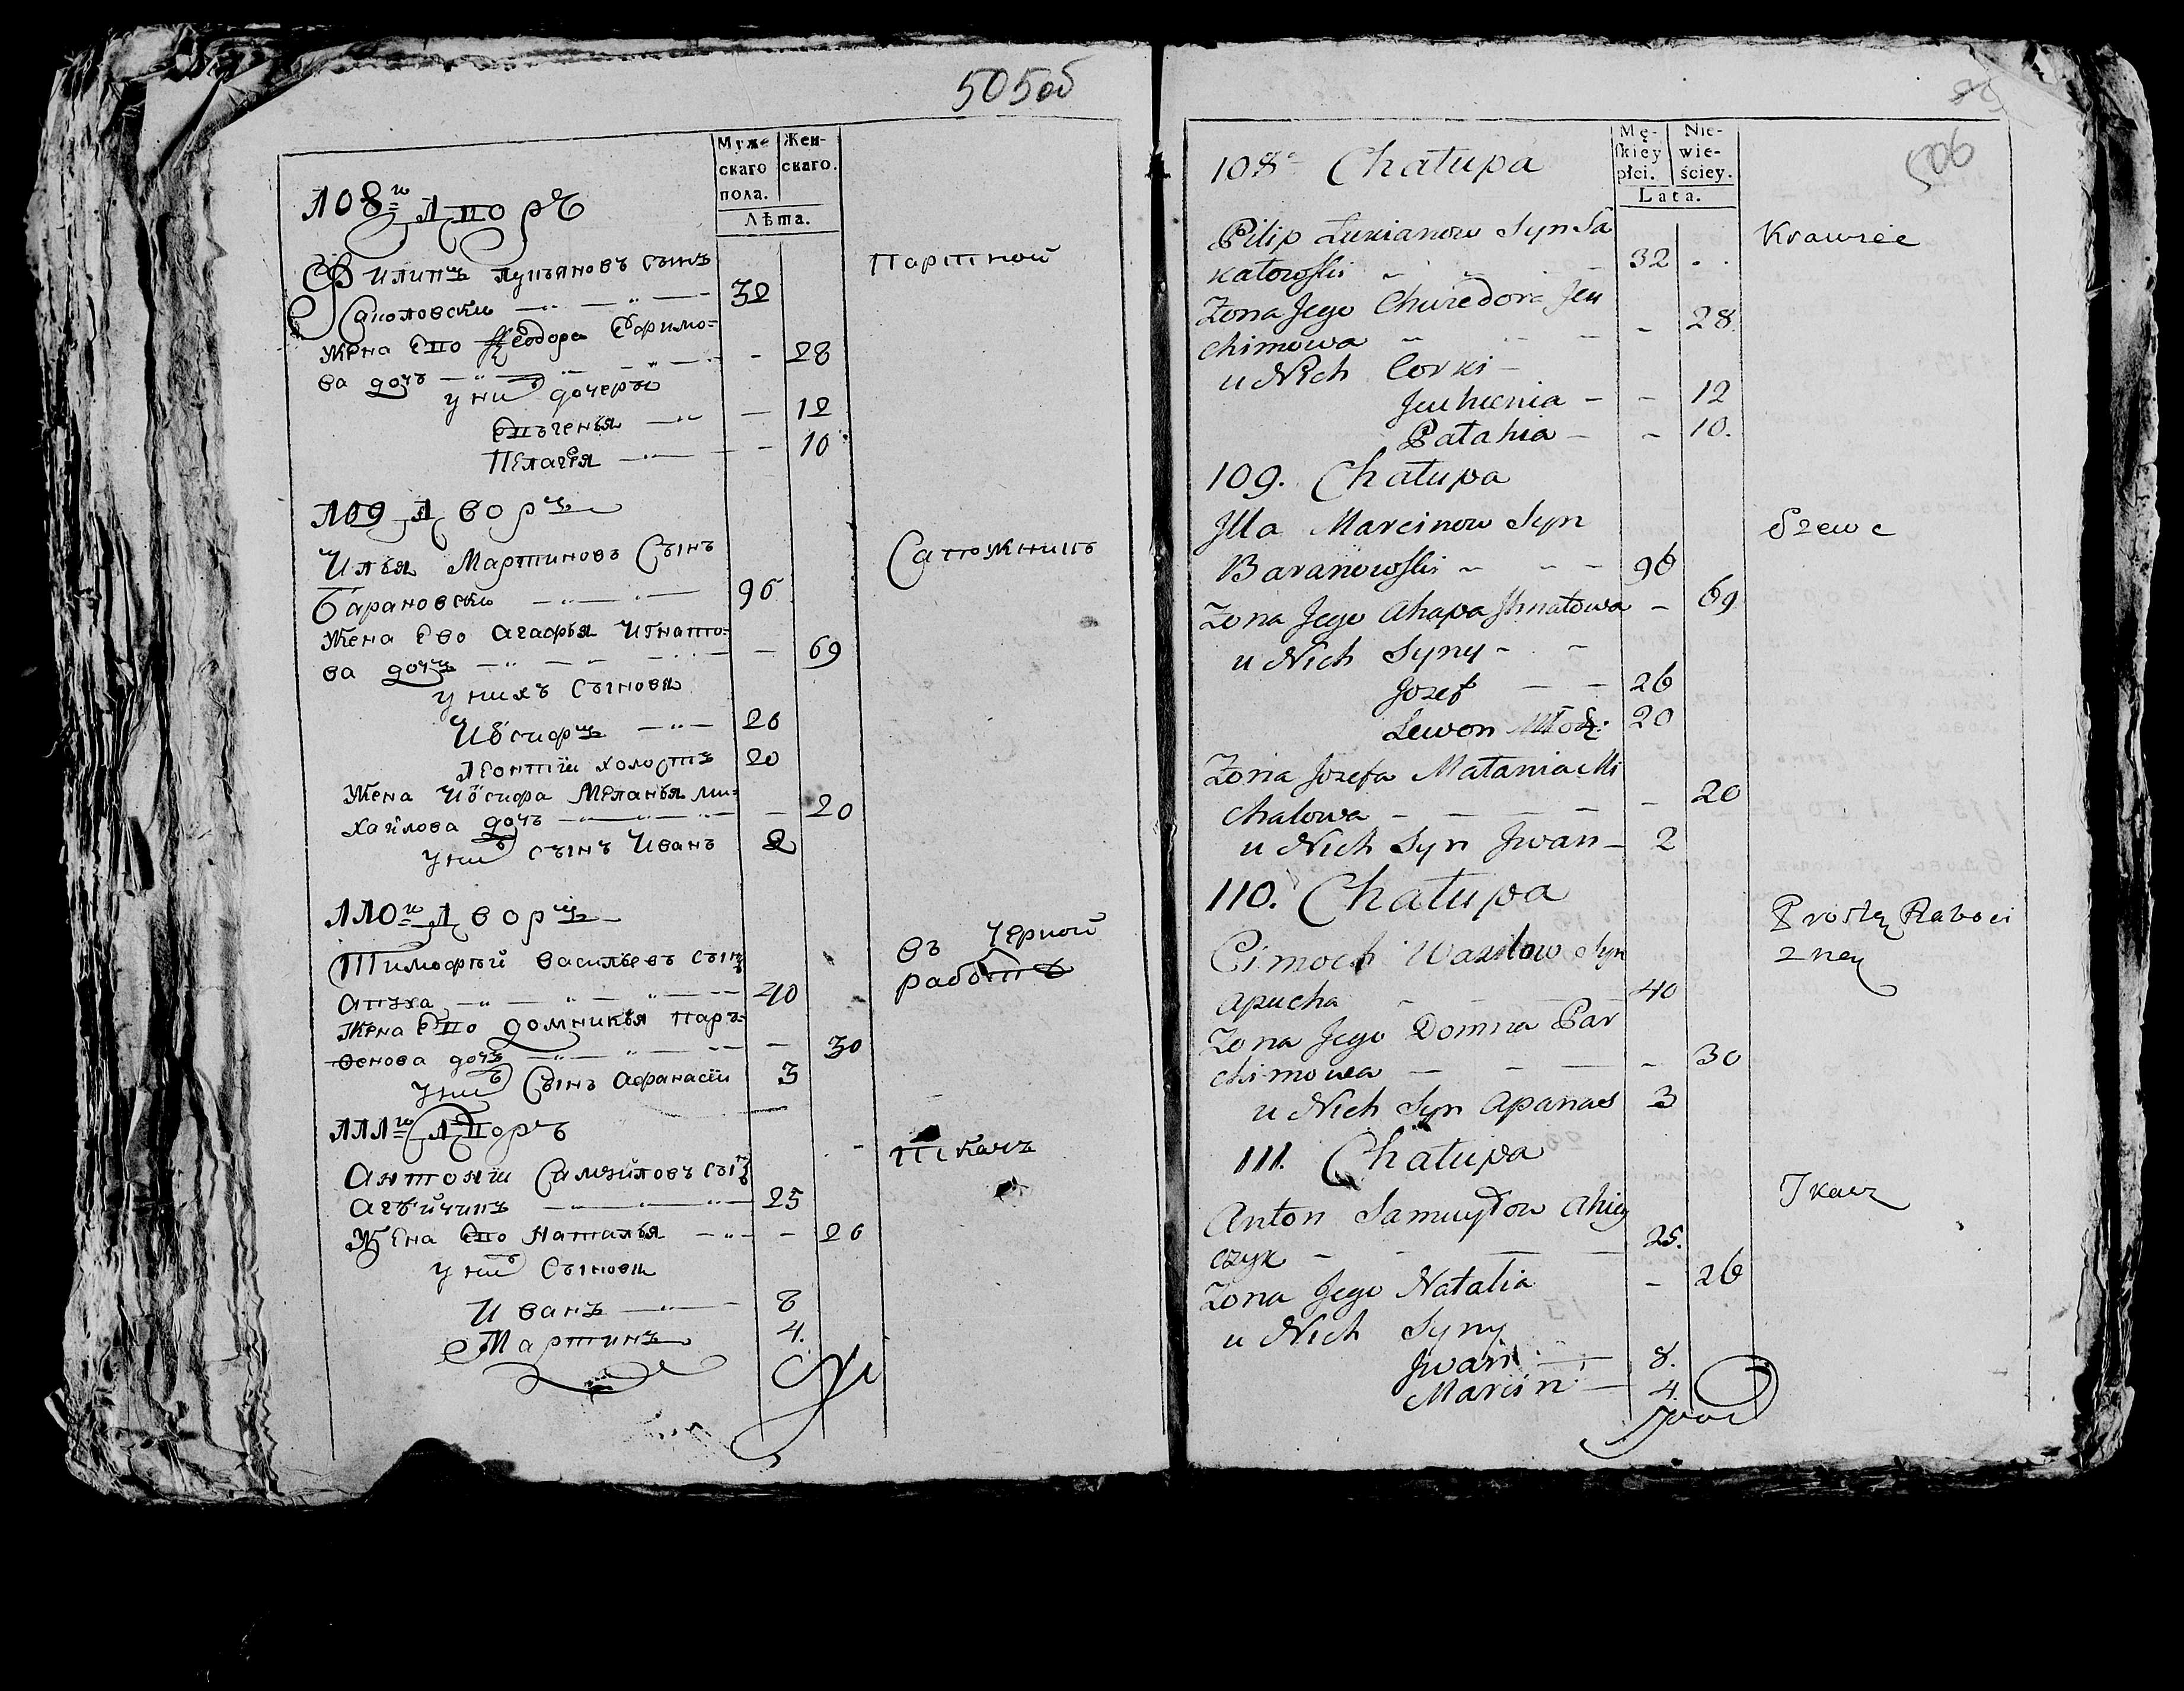 505об
Муже
скаго
пола.
Жен-
скаго.
Лѣта.
108й Дворъ
Филипъ Лукьяновъ сынъ
Саколовски 32
Портной
Жена Ево Феодора Ефимо-
ва дочь 28
у них дочери
Евгенья 12
Пелагея 10
109 Дворъ
Илья Мартиновъ Сынъ
Сапожникъ
Барановски 96
Жена Ево Агафья Игнато-
ва дочь 69
у нихъ сыновя
Иосифъ 26
Леонтіи холостъ 20
Жена Иосифа Меланья ми-
хайлова дочь 20
у них сынъ Иванъ 2
110й Дворъ
Тимофѣй Васильевъ сынъ
въ черной
работѣ
Апуха 40
Жена Ево Домникія Пар-
фенова дочь 30
у них Сынъ Афанасіи 3
111й Дворъ
Антоніи Самуйловъ сынъ
Ткачъ
Агѣйчикъ 25
Жена Ево Наталья 26
у них Сыновя
Иванъ 8
Мартинъ 4.
506
Mę-
skiey
płci.
Nie-
wie-
ściey.
Lata.
108. Chałupa
Pilip Łukianow Syn Sa
kałowski 32
Krawiec
Zona Jego Chwiedora Jeu
chimowa 28.
u Nich Corki
Jeuhienia 12
Pałahia 10.
109. Chałupa
Jlla Marcinow Syn
Szewc
Baranowski 96
Zona Jego Ahapa Jhnatowa 69
u Nich Syny
Jozef 26
Lewon Młod: 20
Zona Jozefa Małania Mi
chałowa 20
u Nich Syn Jwan 2
110. Chałupa
Prosty Raboci
zney
Cimoch Wasilow Syn
Apucha 40
Zona Jego Domna Par
chimowa 30
u Nich Syn Apanas 3
111. Chałupa
Tkacz
Anton Samuyłow Ahiey
czyk 25.
Zona Jego Natalia 26
u Nich Syny
Jwan 8.
Marcin 4.